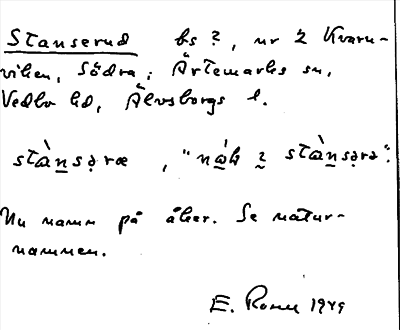 Stanserud bs ?, nr 2 Kvarn-
viken, Södra, Ärtemarks sn,
Vedbo hd, Älvsborgs l.
stàn̲sə̣ræ , "nák i stàn̲sə̣rə".
Nu namn på åker. Se natur-
namnen.
E. Ronn 1949